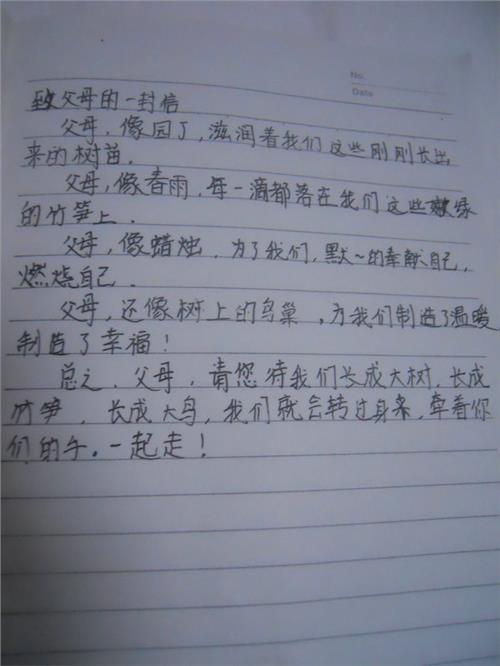 No.
Date
致父母的一封信
父母,像园丁,滋润着我们这些刚刚长出
来的树苗.
父母,像春雨,每一滴都落在我们这些嫩绿
的竹笋上.
父母,像蜡烛,为了我们,默~的奉献自己,
燃烧自己.
父母,还像树上的鸟巢,为我们制造了温暖
制造了幸福!
总之,父母,请您待我们长成大树,长成
竹笋,长成大鸟,我们就会转过身来,牵着你
们的手.一起走!